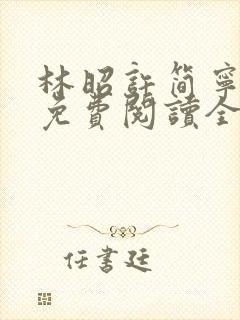 林昭許簡寧
免費閱讀全
任書廷